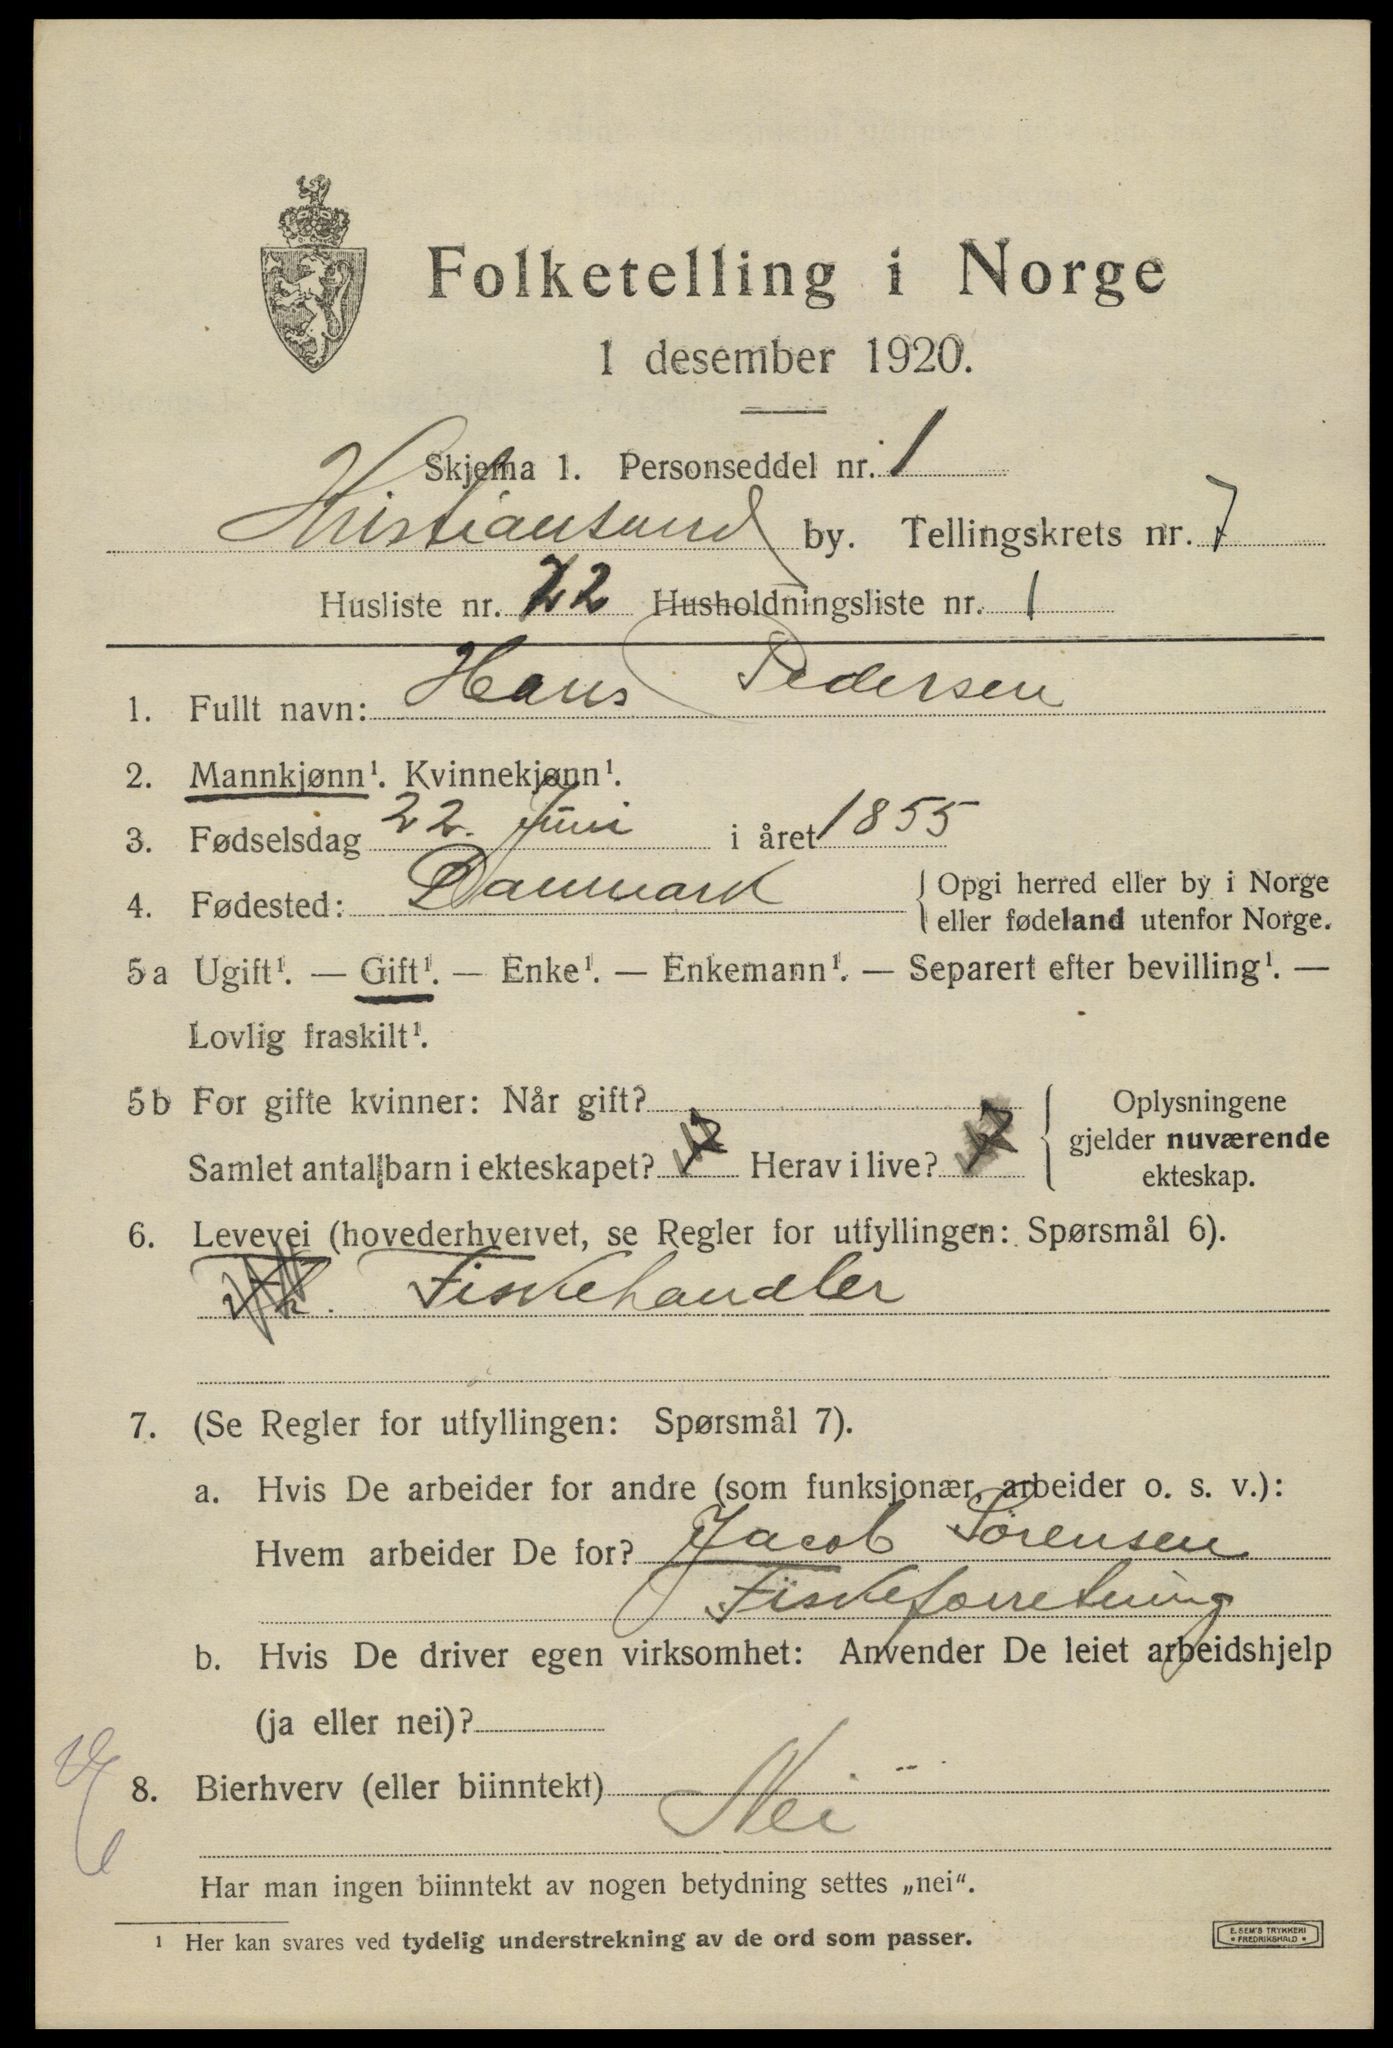 Folketelling i Norge
1 desember 1920.
Skjema 1. Personseddel nr. 1
Kristiansund by. Tellingskrets nr. 7
Husliste nr. 22 Husholdningsliste nr. 1
1. Fullt navn: Hans Pedersen
2. Mannkjønn¹. Kvinnekjønn¹.
3. Fødselsdag 22. Juni i året 1855
4. Fødested: Danmark
{ Opgi herred eller by i Norge
eller fødeland utenfor Norge.
5a Ugift¹. — Gift¹. — Enke¹. — Enkemann¹. — Separert efter bevilling¹. —
Lovlig fraskilt¹.
5b For gifte kvinner: Når gift?
Samlet antall barn i ekteskapet? Herav i live?
{ Oplysningene
gjelder nuværende
ekteskap.
6. Levevei (hovederhvervet, se Regler for utfyllingen: Spørsmål 6).
Fiskehandler
7. (Se Regler for utfyllingen: Spørsmål 7).
a. Hvis De arbeider for andre (som funksjonær, arbeider o. s. v.):
Hvem arbeider De for? Jacob Sørensen
Fiskeforretning
b. Hvis De driver egen virksomhet: Anvender De leiet arbeidshjelp
(ja eller nei)?
8. Bierhverv (eller biinntekt) Nei
Har man ingen biinntekt av nogen betydning settes „nei“.
¹ Her kan svares ved tydelig understrekning av de ord som passer.
E. SEM'S TRYKKERI
* FREDRIKSHALD *